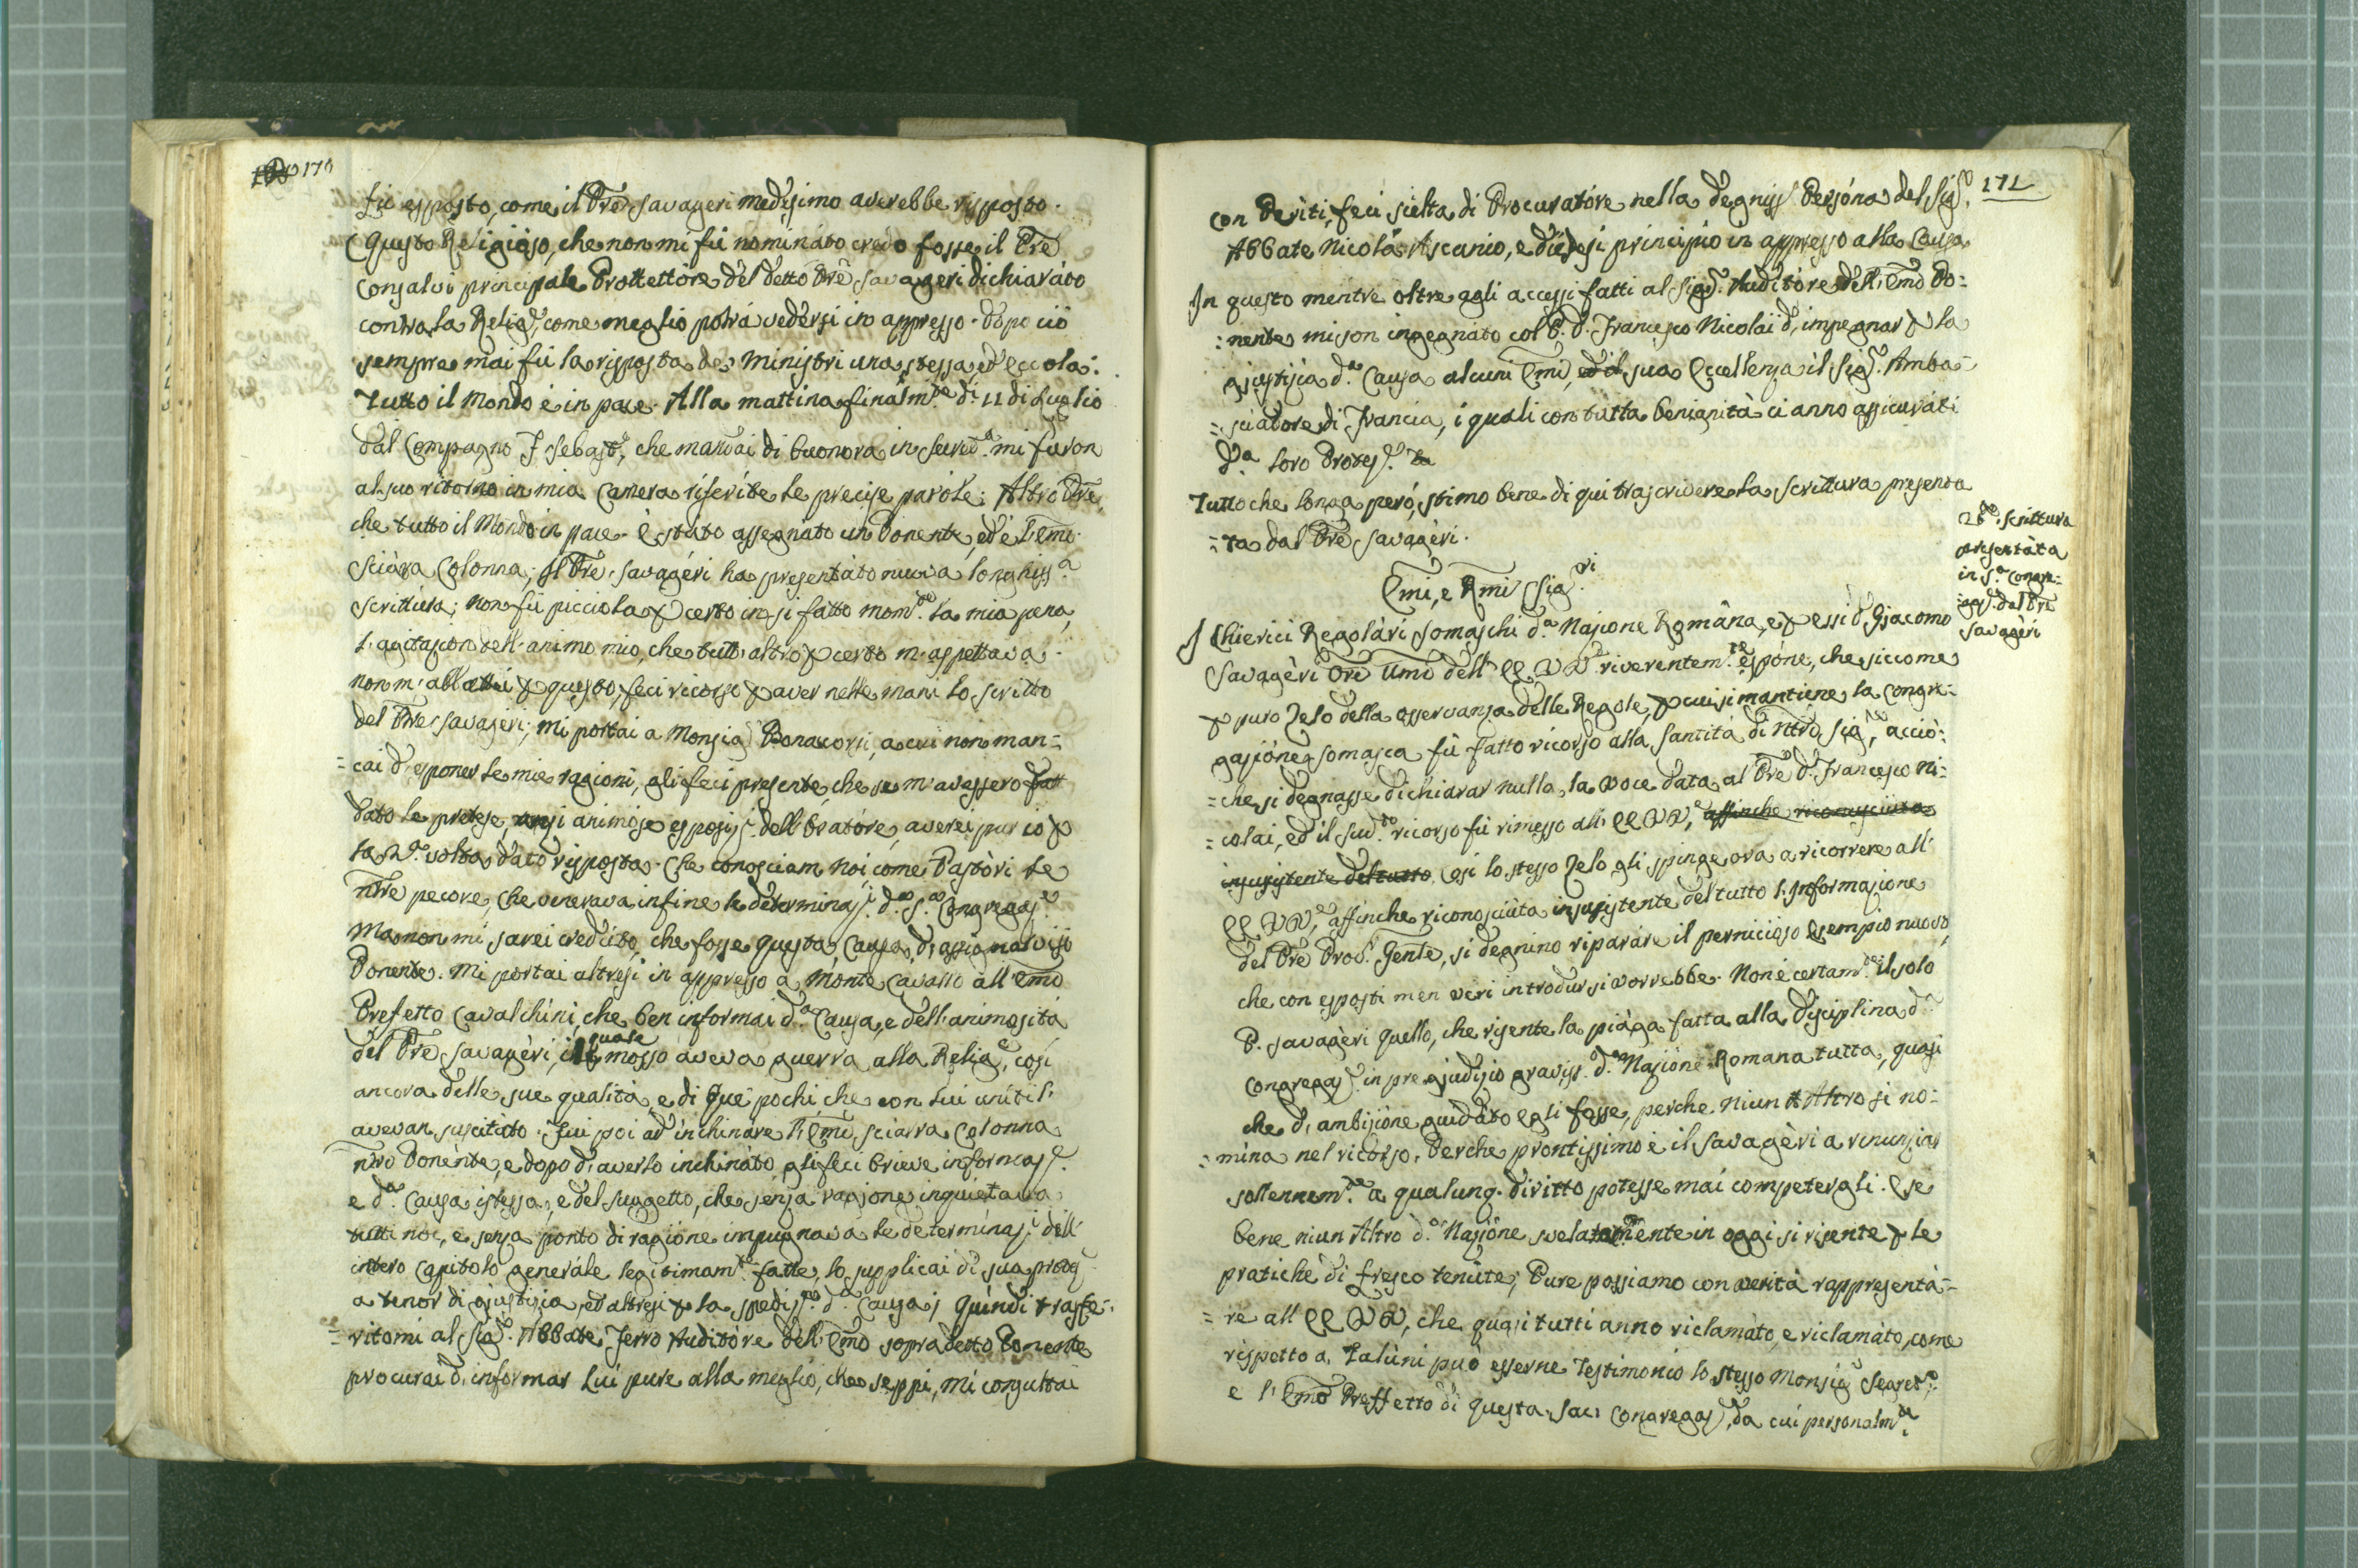 170
fù esposto, come il Pre Savageri medesimo averebbe risposto.
Questo Religioso, che non mi fù nominato credo fosse il Pre
Consalvi principale Prottettore del detto Pre Savageri dichiarato
contro la Relig.e, come meglio potrà vedersi in appresso. Dopo ciò
sempre mai fù la risposta de Ministri una stessa, ed eccola:
Tutto il Mondo è in pace. Alla mattina finalm.te di 11 di Luglio
dal Compagno F. Sebast.o, che mandai di buonora in Secret.a mi furon
al suo ritorno in mia Camera riferite le precise parole: Altro Pre,
che tutto il Mondo in pace. È stato assegnato un Ponente, ed è l'Emo
Sciàra Colonna; il Pre Savagéri ha presentàto nuova longhiss.a
Scrittura; non fù picciola p certo in si fatto mom.to la mia pena,
l'agitazion dell'animo mio, che tutt'altro p certo m'aspettava.
non m' p questo, feci ricorso p aver nelle mani lo scritto
del Pre Savageri; mi portai a Monsig.r Bonacorsi, a cui non man=
=cai d'esponer le mie ragioni, gli feci presente, che se m'avessero fatt
dato le pretese, anzi animose esposiz.i dell'Oratóre, averei pur io p
la 2.da volta dato risposta. Che conosciam noi come Pastòri le
nre pecore, che venerava infine le determinaz.i d.a S.a Congregaz.e
Ma non mi sarei creduto, che fosse questa Causa d'assignarvisi
Ponente. Mi portai altresì in appresso a Monte Cavallo all'Emo
Prefetto Cavalchini, che ben informai d.a Causa, e dell'animosità
del Pre Savagèri, il quale mosso aveva guerra alla Relig.e, così
ancora delle sue qualità e di que pochi che con lui uniti l'
avevan suscitato. Fui poi ad inchinàre l'Emo Sciarra Colonna
nro Ponènte, e dopo d'averlo inchinàto, gli feci brieve informaz.e
e d.a Causa istessa, e del suggetto, che senza ragione inquietava
tutti noi, e senza ponto di ragióne impugnava le determinaz.i dell'
intero Capitolo generàle legitimam.te fatte, lo supplicai di sua protez.e
a tenor di giustizia, ed altresì p la spediz.ne d.a Causa; quindi trasfe=
=ritomi al Sig.r Abbate Ferro Auditóre dell'Emo sopradetto Ponente
procurai d'informar Lui pure alla meglio, che seppi, mi consultai
171
con Perìti, feci scielta di Procuratóre nella degniss.a Persóna del Sig.r
Abbate Nicolà Ascanio, e diedesi principio in appresso alla Causa
In questo mentre oltre agli accessi fatti al Sig.r Auditóre dell'Emo Po=
=nente mi son ingegnato col P. D. Francesco Nicolai d'impegnar p la
giustizia d.a Causa alcuni Emi, ed il sua Eccellenza il Sig.r Amba=
=sciatore di Francia, i quali con tutta benignità ci anno assicurati
d.a loro Protez.e
Tutto che longa però, stimo bene di qui trascrivere la scrittura presenta
=ta dal Pre Savagèri.
2.da Scrittura
presentàta
in S.a Congre=
=gaz.e dal Pre
Savagèri
Emi, e Rmi Sig.ri
I Chierici Regolàri Somaschi d.a Nazione Romàna, e p essi D. Giacomo
Savagèri Ore Umo dell'EE VV riverentem.te espóne, che siccome
p puro Zelo della osservanza delle Regole, p cui si mantiene la Congre=
gazióne Somasca fù fatto ricorso alla Santità di Ntro Sig.re, acciò=
=che si degnasse dichiarar nulla la voce data al Pre D. Francesco Ni=
=colai, ed il sud.to ricorso fù rimesso all'EE VV, affinche riconosciuta
insussistente del tutto. Così lo stesso Zelo gli spinge ora a ricorrere all'
EE VV, affinche riconosciùta insussistente del tutto l'Informazione
del Pre Proc.r Gente, si degnino riparàre il pernicioso esempio nuovo,
che con esposti men veri introdursi vorrebbe. Non è certam.te il solo
P. Savagèri quello, che risente la piàga fatta alla Disciplina d.a
Congregaz.e in pregiudizio graviss.o d.a Nazióne Romana tutta, quasi
che d'ambizióne guidàto egli fosse, perche niun Altro si no=
=mina nel ricorso. Perche prontissimo è il Savagèri a rinunziar
sollennem.te a qualunq. diritto potesse mai competergli. E se
bene niun Altro d.a Nazióne svelatamente in oggi si risente p le
pratiche di fresco tenùte; Pure possiamo con verità rappresentà=
=re all'EE VV, che quasi tutti anno riclamàto, e riclamàto, come
rispetto a Talùni può esserne Testimonio lo stesso Monsig.r Segret.o
e l'Emo Preffetto di questa Sac. Congregaz.e, da cui personalm.te